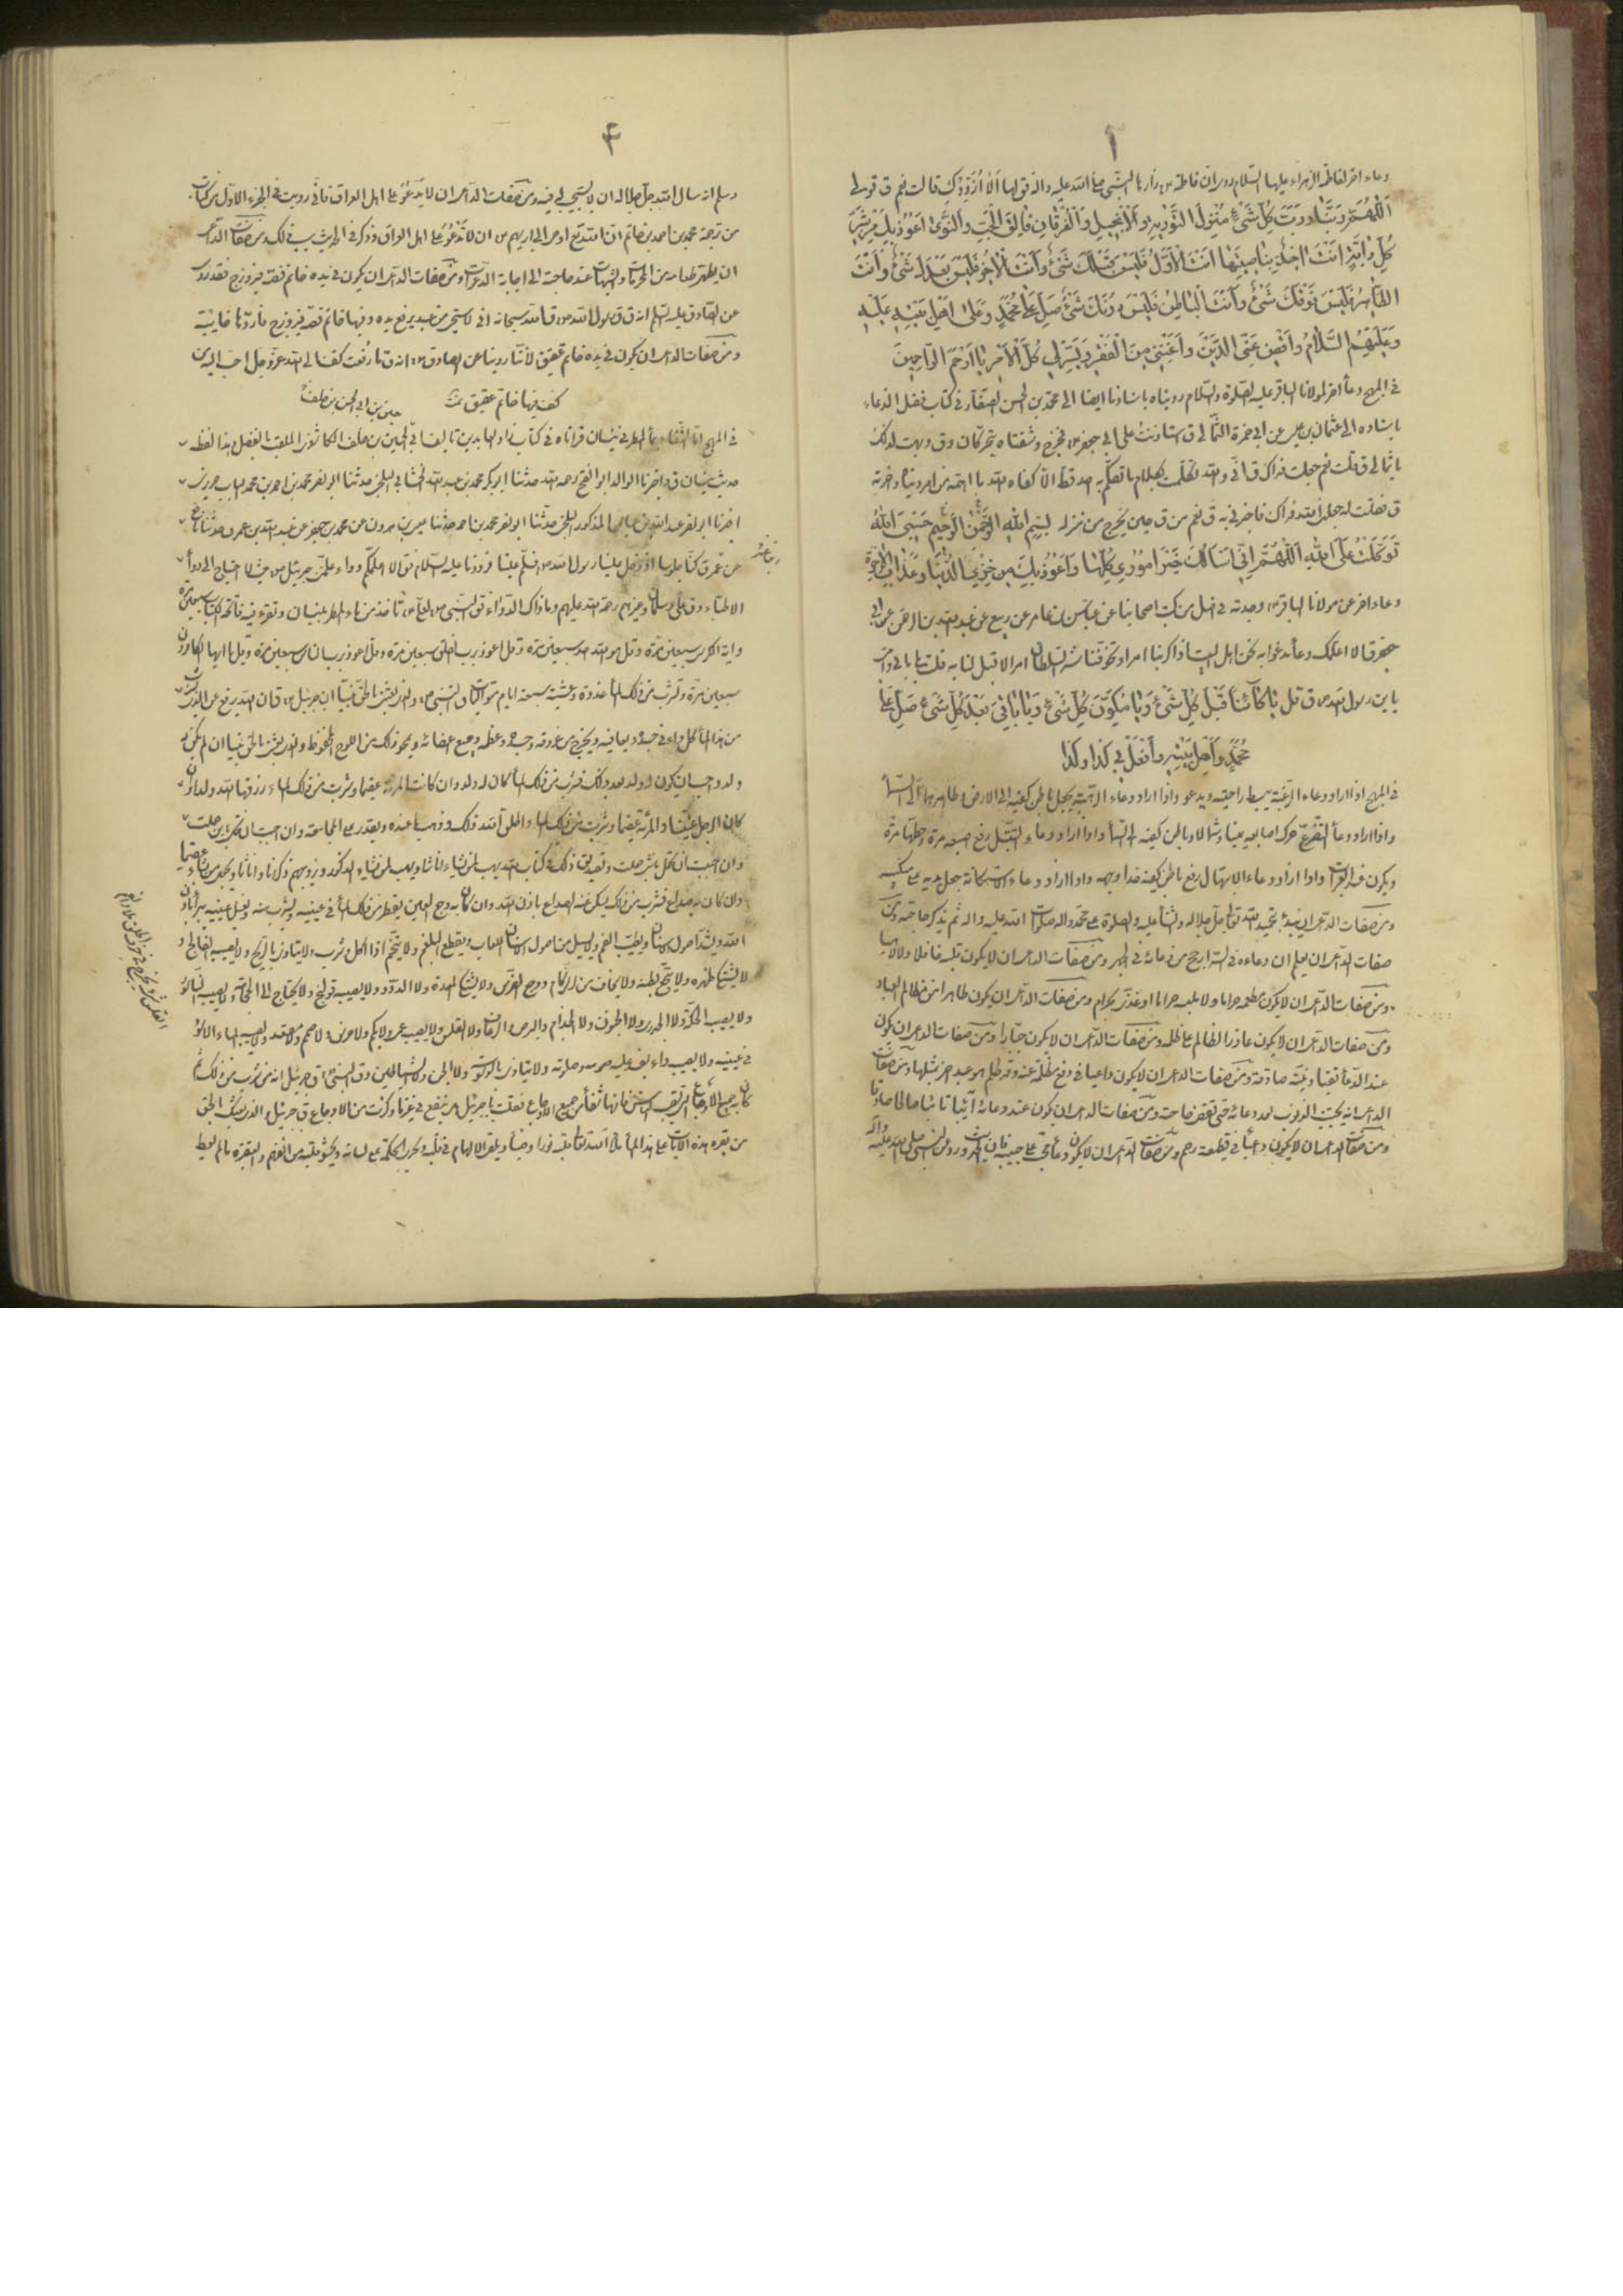 ۱
دعاء اخر لفاطمة الزهراء عليها السلام روى ان فاطمة زارت النبي صلى الله عليه واله فق لها الا ازودك قالت نعم ق قولي
اَللّٰهُمَّ رَبَّنا وَرَبَّ كُلِّ شَيْءٍ مُنْزِلَ التَّوْرٰيةِ وَالْاِنْجيلِ وَالْفُرْقانِ فالِقَ الْحَبِّ وَالنَّوىٰ اَعُوذُ بِكَ مِنْ شَرِّ
كُلِّ دابَّةٍ اَنْتَ اٰخِذٌ بِناصِيَتِها اَنْتَ الْاَوَّلُ فَلَيْسَ قَبْلَكَ شَيْءٌ وَاَنْتَ الْاٰخِرُ فَلَيْسَ بَعْدَكَ شَيْءٌ وَاَنْتَ
الظّاهِرُ فَلَيْسَ فَوْقَكَ شَيْءٌ وَاَنْتَ الْباطِنُ فَلَيْسَ دُونَكَ شَيْءٌ صَلِّ عَلىٰ مُحَمَّدٍ وَعَلىٰ اَهْلِ بَيْتِهِ عَلَيْهِ
وَعَلَيْهِمُ السَّلامُ وَاقْضِ عَنِّى الدَّيْنَ وَاَغْنِنى مِنَ الْفَقْرِ وَيَسِّرْ لى كُلَّ الْاَمْرِ يا اَرْحَمَ الرّاحِمينَ
في المهج دعاء اخر لمولانا الباقر عليه الصلوة والسلام رويناه باسنادنا ايضا الى محمد بن الحسن الصفار في كتاب فضل الدعاء
باسناده الى عثمان بن عيسى عن ابي حمزة الثمالي ق استاذنت على ابي جعفر فخرج وشفتاه يتحركان وق وبهت لذلك
يا ثمالي ق قلت نعم جعلت فداك ق اني والله تكلمت بكلام ما تكلم به احد قط الا كفاه الله ما اهمه من امر دنياه واخرته
ق فقلت له جعلني الله فداك فاخبرني به ق نعم من ق حين يخرج من منزله بِسْمِ اللهِ الرَّحْمٰنِ الرَّحيمِ حَسْبِىَ اللهُ
تَوَكَّلْتُ عَلَى اللهِ اَللّٰهُمَّ اِنّى اَسْاَلُكَ خَيْرَ اُمُورى كُلِّها وَاَعُوذُ بِكَ مِنْ خِزْىِ الدُّنْيا وَعَذابِ الْاٰخِرَةِ
دعاء اخر عن مولانا الباقر وجدته في اصل من كتب اصحابنا عن عباس بن عامر عن ربيع عن عبد الله بن عبد الرحمن عن ابي
جعفر ق الا اعلمك دعاء ندعوا به نحن اهل البيت اذا كربنا امر وتخوفنا شر السلطان امرا لا قبل لنا به قلت بلى بابي وامي
يا بن رسول الله ق قل يا كائِناً قَبْلَ كُلِّ شَيْءٍ وَيا مُكَوِّنَ كُلِّ شَيْءٍ وَيا باقى بَعْدَ كُلِّ شَيْءٍ صَلِّ عَلىٰ
مُحَمَّدٍ وَاَهْلِ بَيْتِهِ وَافْعَلْ بى كَذا وَكَذا
في المهج اذا اراد دعاء الرغبة يبسط راحتيه ويدعو واذا اراد دعاء الرهبة يجعل باطن كفيه الى الارض وظاهرهما الى السماء
واذا اراد دعاء التضرع حرك اصابعه يمينا وشمالا وباطن كفيه الى السماء واذا اراد دعاء التبتل رفع اصبعه مرة وحطها مرة
ويكون عند العبرات واذا اراد دعاء الابتهال رفع باطن كفيه حذاء وجهه واذا اراد دعاء الاستكانة جعل يديه على منكبيه
ومن صفات الداعي ان يبدء بتحميد الله تعالى جل جلاله والثناء عليه والصلوة على محمد واله صلوات الله عليه واله ثم يذكر حاجته ومن
صفات الداعي ان يعلم ان دعاءه في السر ارجح من دعائه في الجهر ومن صفات الداعي ان لا يكون قلبه غافلا ولا لاهيا
ومن صفات الداعي ان لا يكون مطعمه حراما ولا ملبسه حراما او غذي بحرام ومن صفات الداعي ان يكون طاهرا من مظالم العباد
ومن صفات الداعي ان لا يكون عاذرا لظالم على ظلمه ومن صفات الداعي ان لا يكون جبارا ومن صفات الداعي ان يكون
عند الدعاء تقيا ونيته صادقة ومن صفات الداعي ان لا يكون داعيا في دفع مظلمة عنه وقد ظلم هو عبدا اخر بمثلها ومن صفات
الداعي انه يجتنب الذنوب بعد دعائه حتى تقضى حاجته ومن صفات الداعي ان يكون عند دعائه آئبا تائبا صالحا صادقا
ومن صفات الداعي ان لا يكون داعيا في قطيعة رحم ومن صفات الداعي ان لا يكون دعاؤه على حبيبه فان الحديث ورد عن النبي صلى الله عليه واله
۴
وسلم انه سال الله جل جلاله ان لا يستجيب له فيه ومن صفات الداعي ان لا يدعو على اهل العراق فاني رويت في الجزء الاول من كتاب
من ترجمة محمد بن احمد بن حاتم ان الله تع اوحى الى ابرهيم ان لا تدعو على اهل العراق وذكر في الحديث سبب ذلك ومن صفات الداعي
ان يطهر طعامه من الحرمات والشبهات عند حاجته الى اجابة الدعوات ومن صفات الداعي ان يكون في يده خاتم فصه فيروزج فقد روي
عن الصادق عليه السلم انه ق ق رسول الله ق الله سبحانه اني لاستحيي من عبد يرفع يده وفيها خاتم فصه فيروزج فاردها خائبة
ومن صفات الداعي ان يكون في يده خاتم عقيق لاننا روينا عن الصادق انه ق ما رفعت كف الى الله عز وجل احب اليه من
كف فيها خاتم عقيق
في المهج
حديث نيسان ق واخبرنا الوالد ابو الفتح رحمه الله حدثنا ابو بكر محمد بن عبد الله الخشابي البلخي حدثنا ابو نصر محمد بن احمد بن محمد
اخبرنا ابو نصر عبد الله بن عباس المذكور البلخي حدثنا ابو نصر محمد بن احمد حدثنا عيسى بن هرون عن محمد بن جعفر عن عبد الله بن عمر ق حدثنا نافع
عن ابن عمر ق كنا جلوسا اذ دخل علينا رسول الله فسلم علينا فرددنا عليه السلام فق الا اعلمكم دواء علمني جبرئيل حيث لا احتاج الى دواء
الاطباء وق علي وسلمان وغيرهم رحمة الله عليهم وما ذاك الدواء فق النبي لعلي تاخذ من ماء المطر بنيسان وتقرء فيه فاتحة الكتاب سبعين مرة
واية الكرسي سبعين مرة وقل هو الله احد سبعين مرة وقل اعوذ برب الفلق سبعين مرة وقل اعوذ برب الناس سبعين مرة وقل يا ايها الكافرون
سبعين مرة وتشرب من ذلك الماء غدوة وعشية سبعة ايام متواليات ق النبي والذي بعثني بالحق نبيا ان جبرئيل ق ان الله يرفع عن الذي يشرب
من هذا الماء كل داء في جسده ويعافيه ويخرج من عروقه وجسده وعظمه وجميع اعضائه ويمحو ذلك من اللوح المحفوظ والذي بعثني بالحق نبيا ان لم يكن له
ولد واحب ان يكون له ولد بعد ذلك فشرب من ذلك الماء كان له ولد وان كانت المرئة عقيما وشربت من ذلك الماء رزقها الله ولدا وان
كان الرجل عنينا والمرئة عقيما وشربت من ذلك الماء اطلق الله ذلك وذهب ما عنده ويقدر على المجامعة وان احبت ان تحمل بابن حملت
وان احبت ان تحمل بذكر حملت وتصديق ذلك في كتاب الله يهب لمن يشاء اناثا ويهب لمن يشاء الذكور او يزوجهم ذكرانا واناثا ويجعل من يشاء عقيما
وان كان به صداع فشرب من ذلك يسكن عنه الصداع باذن الله وان كان به وجع العين يقطر من ذلك الماء في عينيه ويشرب منه ويغسل عينيه يبرأ باذن
الله ويشد اصول الاسنان ويطيب الفم ولا يسيل من اصول الاسنان اللعاب ويقطع البلغم ولا يتخم اذا اكل وشرب ولا يتاذى بالريح ولا يصيبه الفالج و
لا يشتكي ظهره ولا ينجع بطنه ولا يخاف من الزكام ووجع الضرس ولا يشتكي المعدة ولا الدود ولا يصيبه قولنج ولا يحتاج الى الحجامة ولا يصيبه
ولا يصيبه الحكة ولا الجدري ولا الجنون ولا الجذام والبرص والرعاف ولا القلس ولا يصيبه عمى ولا بكم ولا خرس ولا صمم ولا مقعد ولا يصيبه الماء الاسود
في عينيه ولا يصيبه داء يفسد عليه صومه وصلوته ولا يتاذى بالوسوسة ولا الجن ولا الشياطين وق النبي ق جبرئيل انه من شرب من ذلك ثم
كان به جميع الاوجاع التي تصيب الناس فانها شفاء من جميع الاوجاع فقلت يا جبرئيل هل ينفع في غير ما ذكرت من الاوجاع ق جبرئيل والذي بعثك بالحق
من يقرء هذه الايات على هذا الماء ملأ الله تعالى قلبه نورا وضياء ويلقي الالهام في قلبه ويجري الحكمة على لسانه ويحشو قلبه من الفهم والتبصرة ما لم يعط